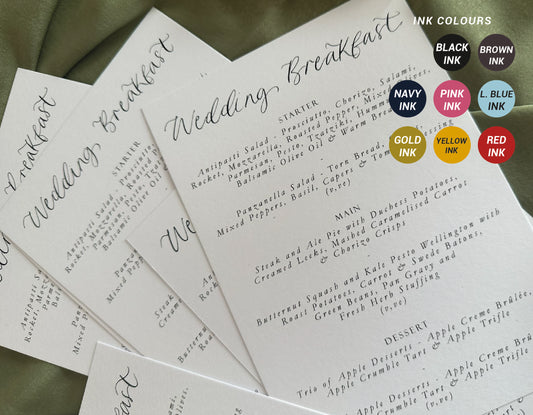 INK COLOURS
BLACK INK
BROWN INK
NAVY INK
PINK INK
L. BLUE INK
GOLD INK
YELLOW INK
RED INK
Wedding Breakfast
STARTER
Antipasti Salad - Prosciutto, Chorizo, Salami,
Rocket, Mozzarella, Roasted Pepper, Mixed
Parmesan, Pesto, Tzatziki,
Balsamic Olive Oil & Warm
Panzanella Salad - Torn Bread,
Mixed Peppers, Basil, Capers &
(v,ve)
MAIN
Steak and Ale Pie with Duchess Potatoes,
Creamed Leeks, Mashed Caramelised Carrot
& Chorizo Crisps
Butternut Squash and Kale Pesto Wellington with
Roast Potatoes, Carrot & Swede Batons,
Green Beans, Pan Gravy and
Fresh Herb Stuffing
(v,ve)
DESSERT
Trio of Apple Desserts - Apple Creme Brûlée,
Apple Crumble Tart & Apple Trifle
Trio of Apple Desserts - Apple Creme Brûlée,
Apple Crumble Tart & Apple Trifle
Wedding Breakfast
STARTER
Antipasti Salad - Prosciutto,
Rocket, Mozzarella,
Parmesan,
Balsamic
Panzanella
Mixed
Breakfast
STARTER
Antipasti Salad
Rocket,
Mixed
Steak
Creamed
Butternut
Breakfast